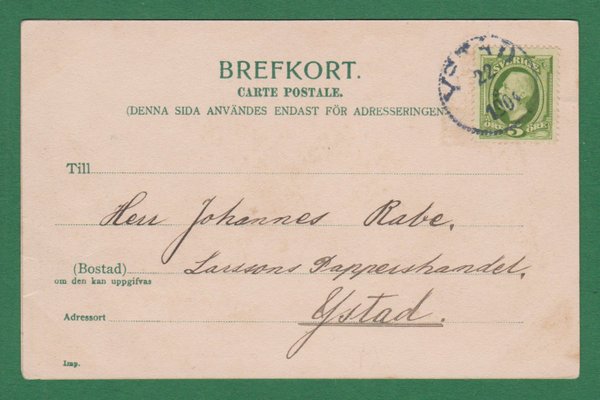 BREFKORT.
CARTE POSTALE.
(DENNA SIDA ANVÄNDES ENDAST FÖR ADRESSERINGEN
YSTAD
22
SVERIGE
5
ÖRE ÖRE
Till
Herr Johannes Rabe.
(Bostad) Larssons Pappershandel,
om den kan uppgifvas
Adressort Ystad.
Imp.